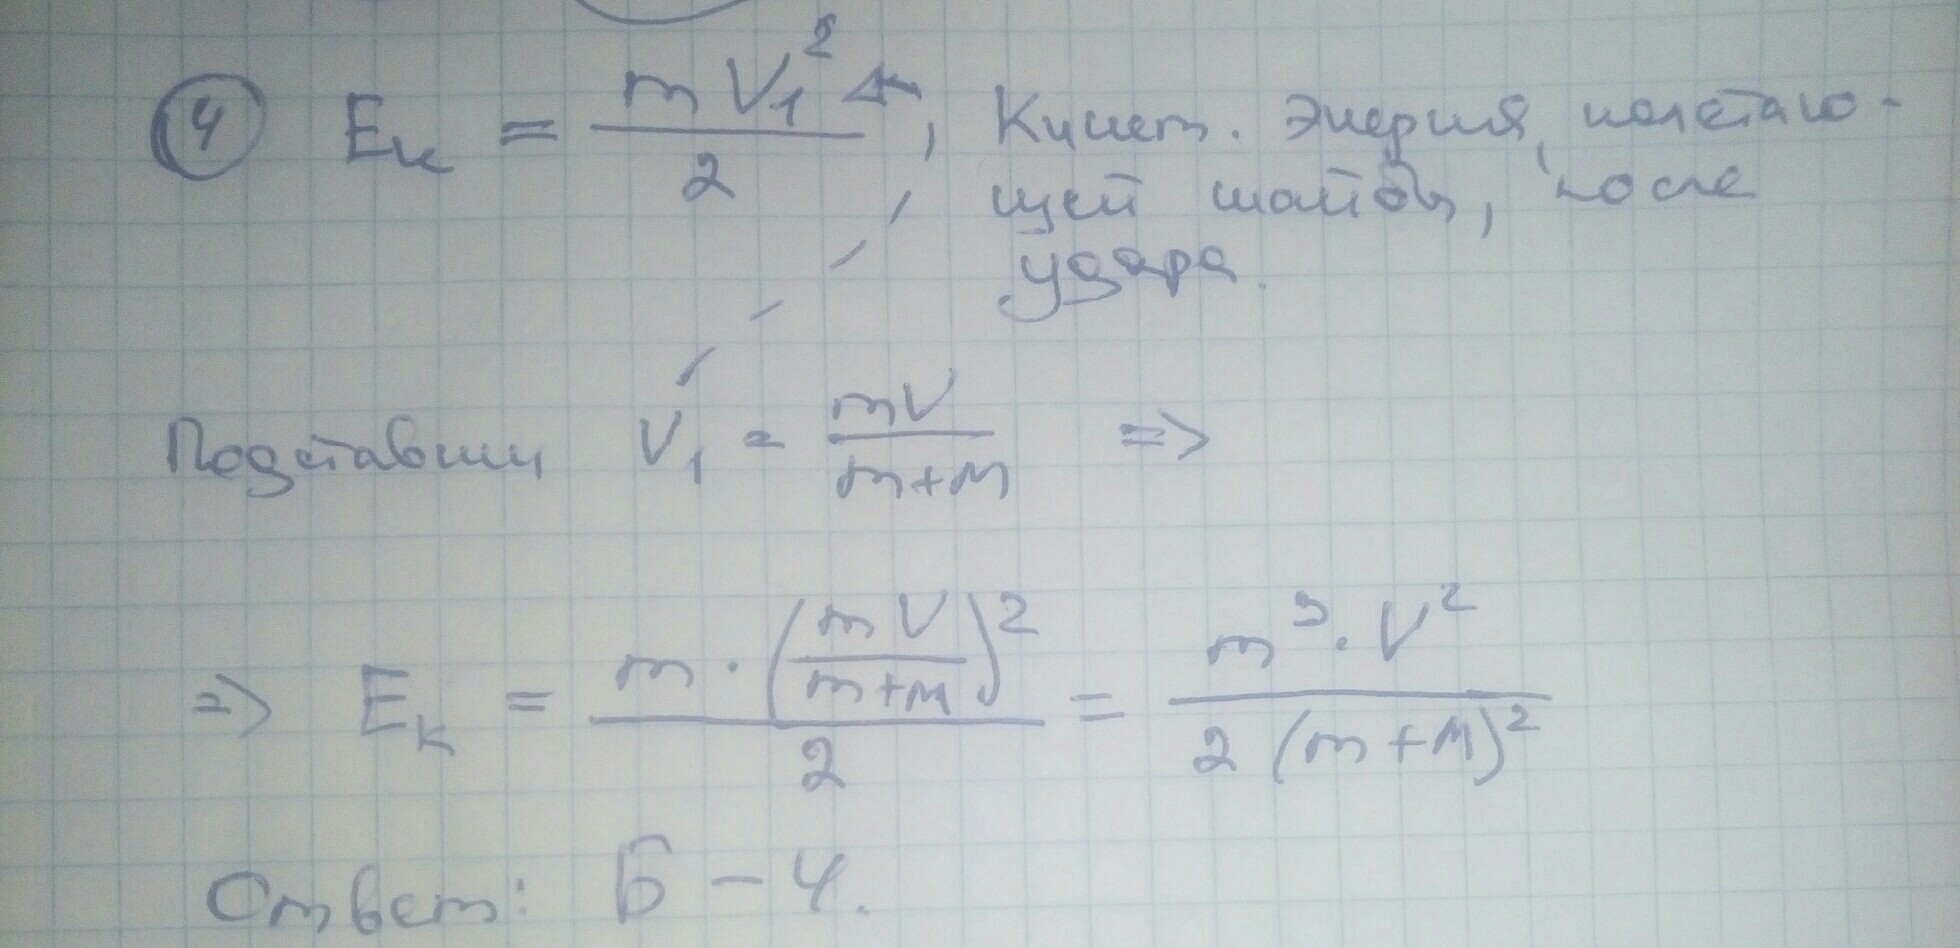 4 Eк = mV₁²/2, Кинет. Энергия, налетаю-
щей шайбы, после
удара.
Подставим V₁ = mV/(m+M) =>
=> Eк = m·(mV/(m+M))²/2 = m³·V²/2(m+M)²
Ответ: Б – 4.